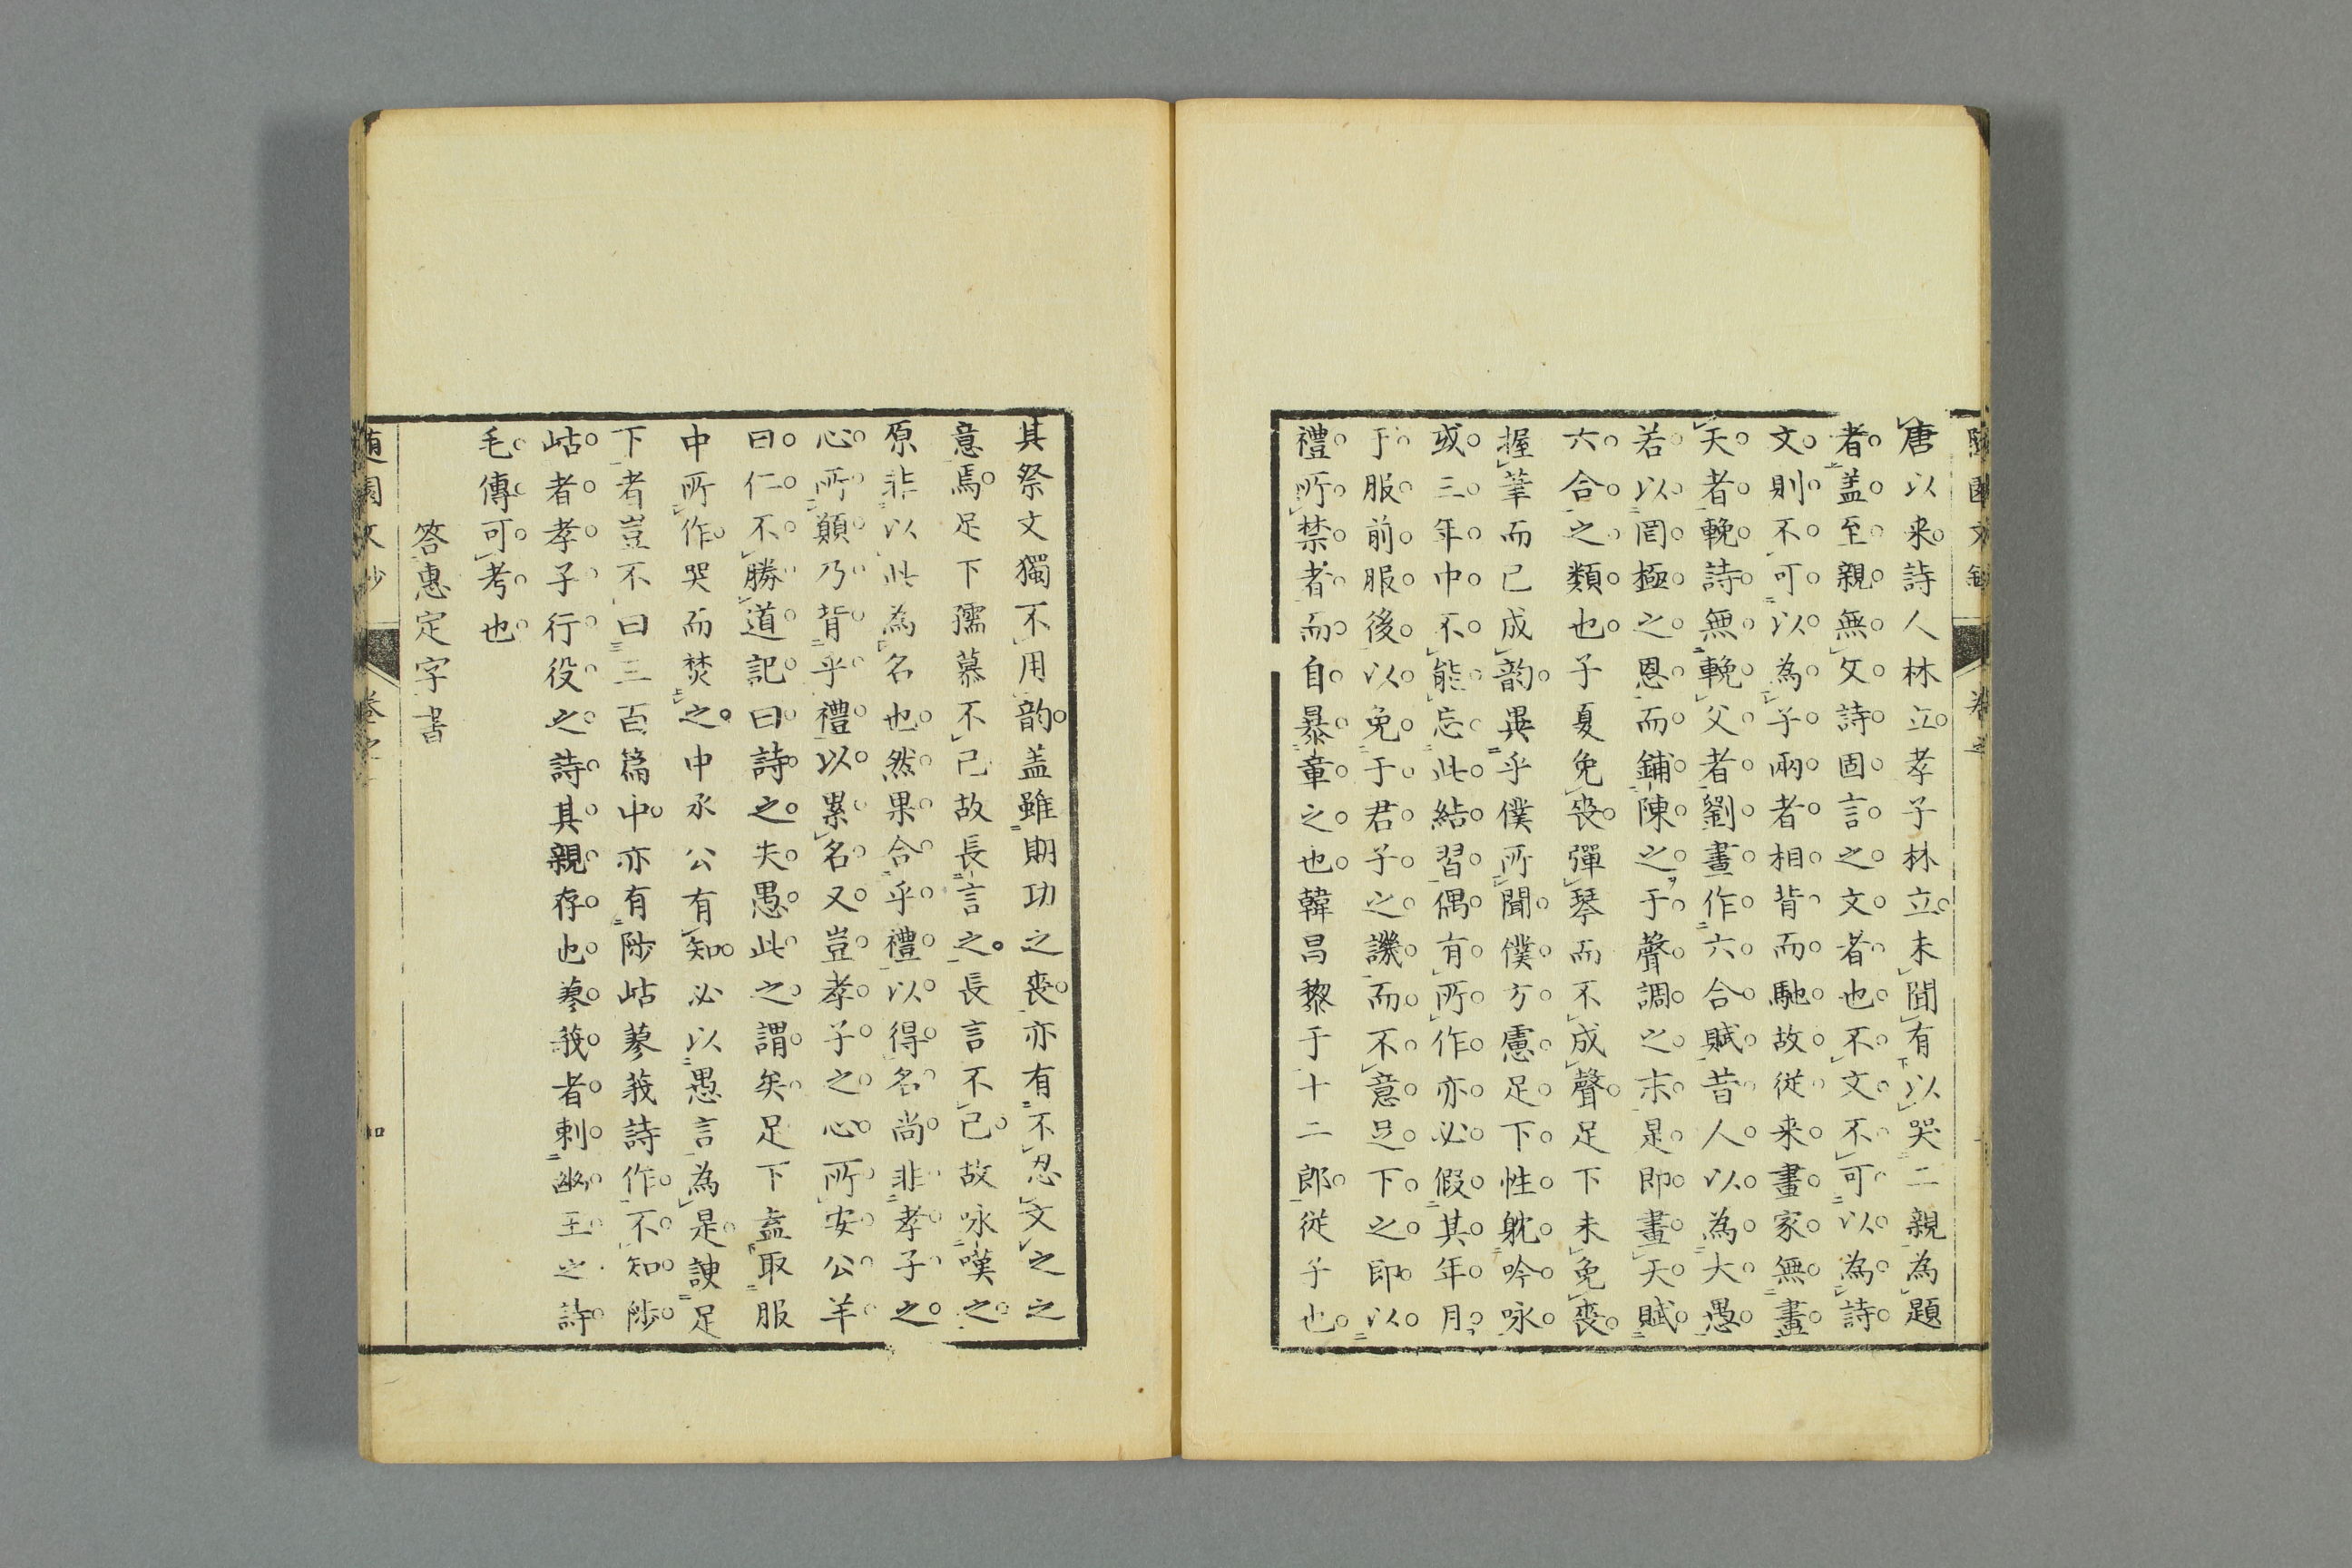 唐以来詩人林立孝子林立未聞有以哭二親為題
者盖至親無文詩固言之文者也不文不可以為詩
文則不可以為子兩者相背而馳故従来畫家無畫
天者輓詩無輓父者劉晝作六合賦昔人以為大愚
若以罔極之恩而鋪陳之于聲調之末是即畫天賦
六合之類也子夏免喪彈琴而不成聲足下未免喪
握筆而已成韵異乎僕所聞僕方慮足下性躭吟咏
或三年中不能忘此結習偶有所作亦必假其年月
于服前服後以免于君子之譏而不意足下之即以
禮所禁者而自暴章之也韓昌黎于十二郎従子也
其祭文獨不用韵盖雖期功之喪亦有不忍文之之
意焉足下孺慕不已故長言之長言不已故咏嘆之
原非以此為名也然果合乎禮以得名尚非孝子之
心所願乃背乎禮以累名又豈孝子之心所安公羊
曰仁不勝道記曰詩之失愚此之謂矣足下盍取服
中所作哭而焚之中丞公有知必以愚言為是諛足
下者豈不曰三百篇中亦有陟岵蓼莪詩作不知陟
岵者孝子行役之詩其親存也蓼莪者刺幽王之詩
毛傳可考也
答惠定宇書